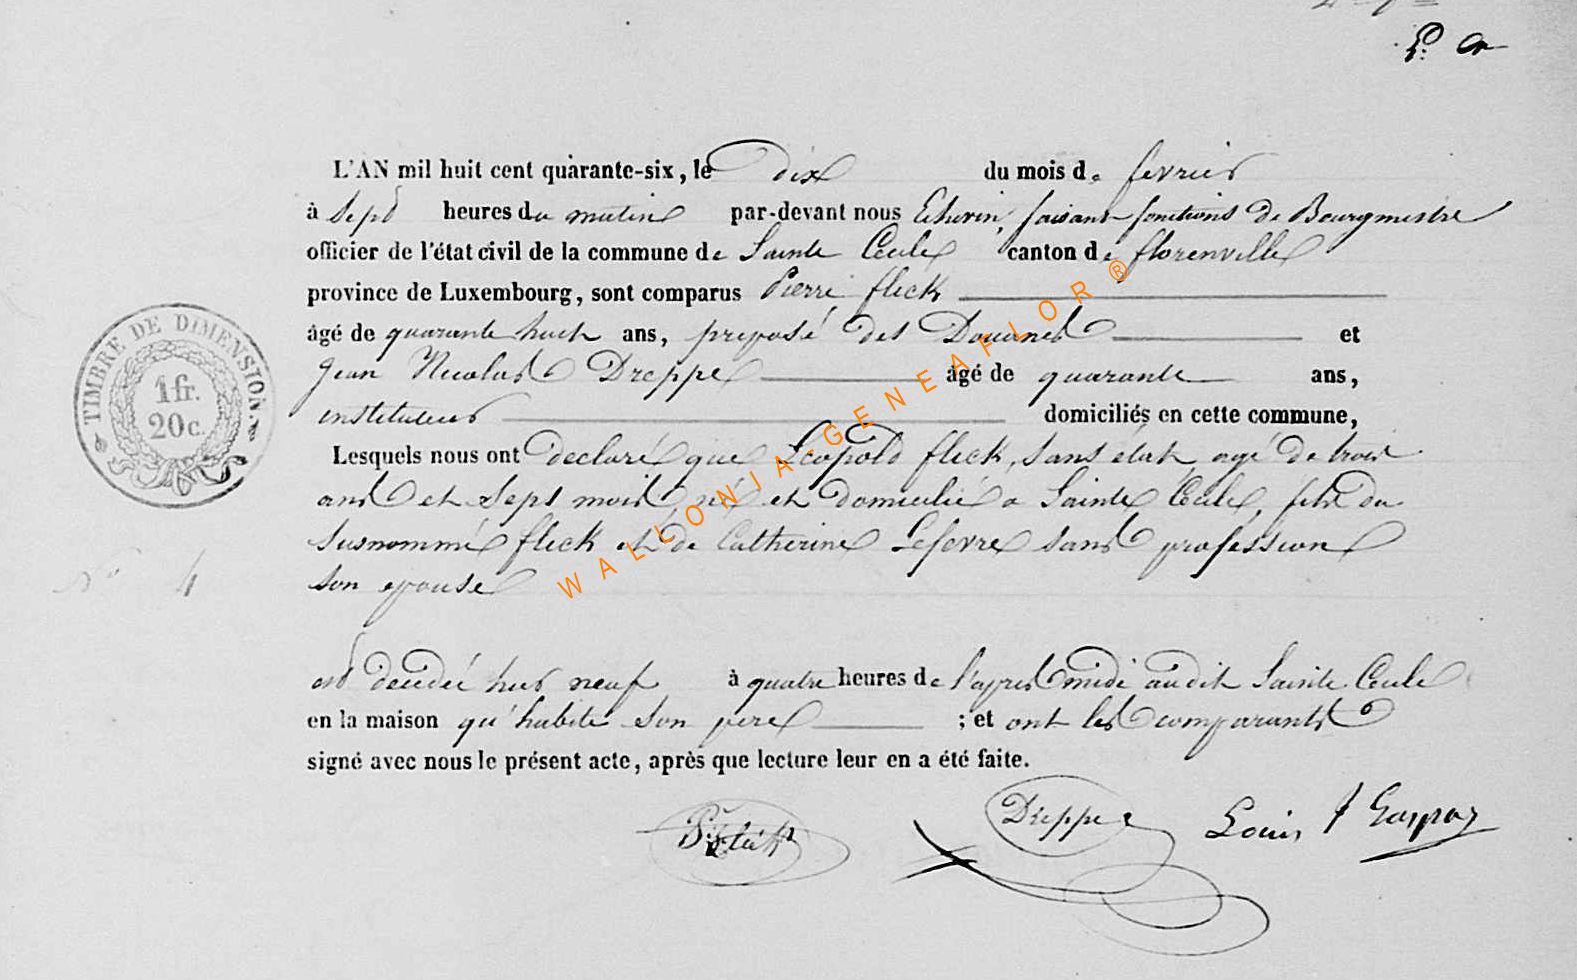 L'AN mil huit cent quarante-six, le dix du mois de fevrier
à Sept heures du matin par-devant nous Echevin, faisant fonctions de Bourgmestre
officier de l'état civil de la commune de Sainte Cecile canton de florenville
province de Luxembourg, sont comparus Pierre fleck
âgé de quarante huit ans, preposé des Douanes et
Jean Nicolas Dreppe âgé de quarante ans,
instituteur domiciliés en cette commune,
Lesquels nous ont declaré que Leopold fleck, sans état, agé de trois
ans et sept mois, né et domicilié a Sainte Cecile, fils du
susnommé fleck et de Catherine Lefevre sans profession
son epouse
N° 4
est decidée hier neuf à quatre heures de l'après midi audit Sainte Cecile
en la maison qu'habite son pere ; et ont les comparants
signé avec nous le présent acte, après que lecture leur en a été faite.
P. fleck Dreppe Louis J Gaspar
TIMBRE DE DIMENSION.
1 fr.
20 c.
WALLONIA-GENEAFLOR®